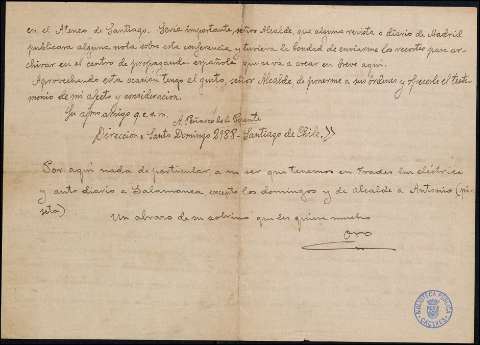 en el Ateneo de Santiago. Sería importante, señor Alcalde, que alguna revista o diario de Madrid
publicara alguna nota sobre esta conferencia, y tuviera la bondad de enviarme los recortes para ar-
chivar en el centro de propaganda española que se va a crear en breve aquí.
Aprovechando esta ocasión tengo el gusto, señor Alcalde, de ponerme a sus órdenes y ofrecerle el testi-
monio de mi afecto y consideración.
Su afmo amigo q.e.s.m.
A. de la Puente
Dirección: Santo Domingo 2188 - Santiago de Chile. "
Por aquí nada de particular a no ser que tenemos en Frades luz eléctrica
y auto diario a Salamanca excepto los domingos y de alcalde a Antonio
Un abrazo de su sobrino que les quiere mucho
BIBLIOTECA PÚBLICA
CÁCERES